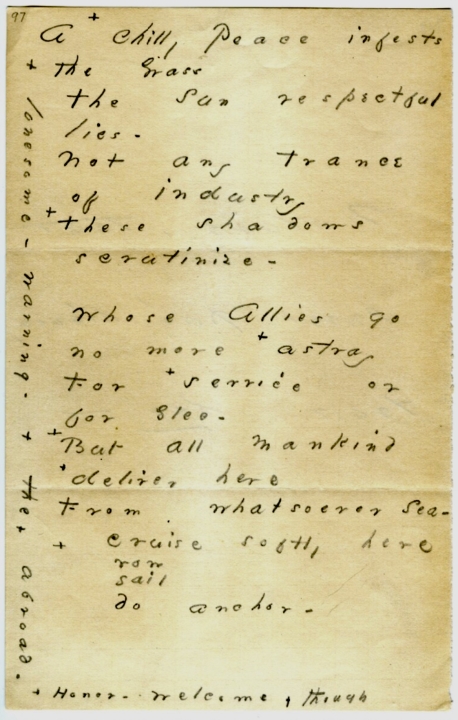 97
A + chill, Peace infests
+ the Grass
The Sun respectful
lies -
Not any trance
of industry
+ These shadows
scrutinize -
Whose Allies go
no more + astray
For + service or
for Glee -
+ But all mankind
+ deliver here
From whatsoever sea -
+ cruise softly here
row
sail
do anchor -
+ lonesome - warning - + the + abroad -
+ Honor - welcome + though